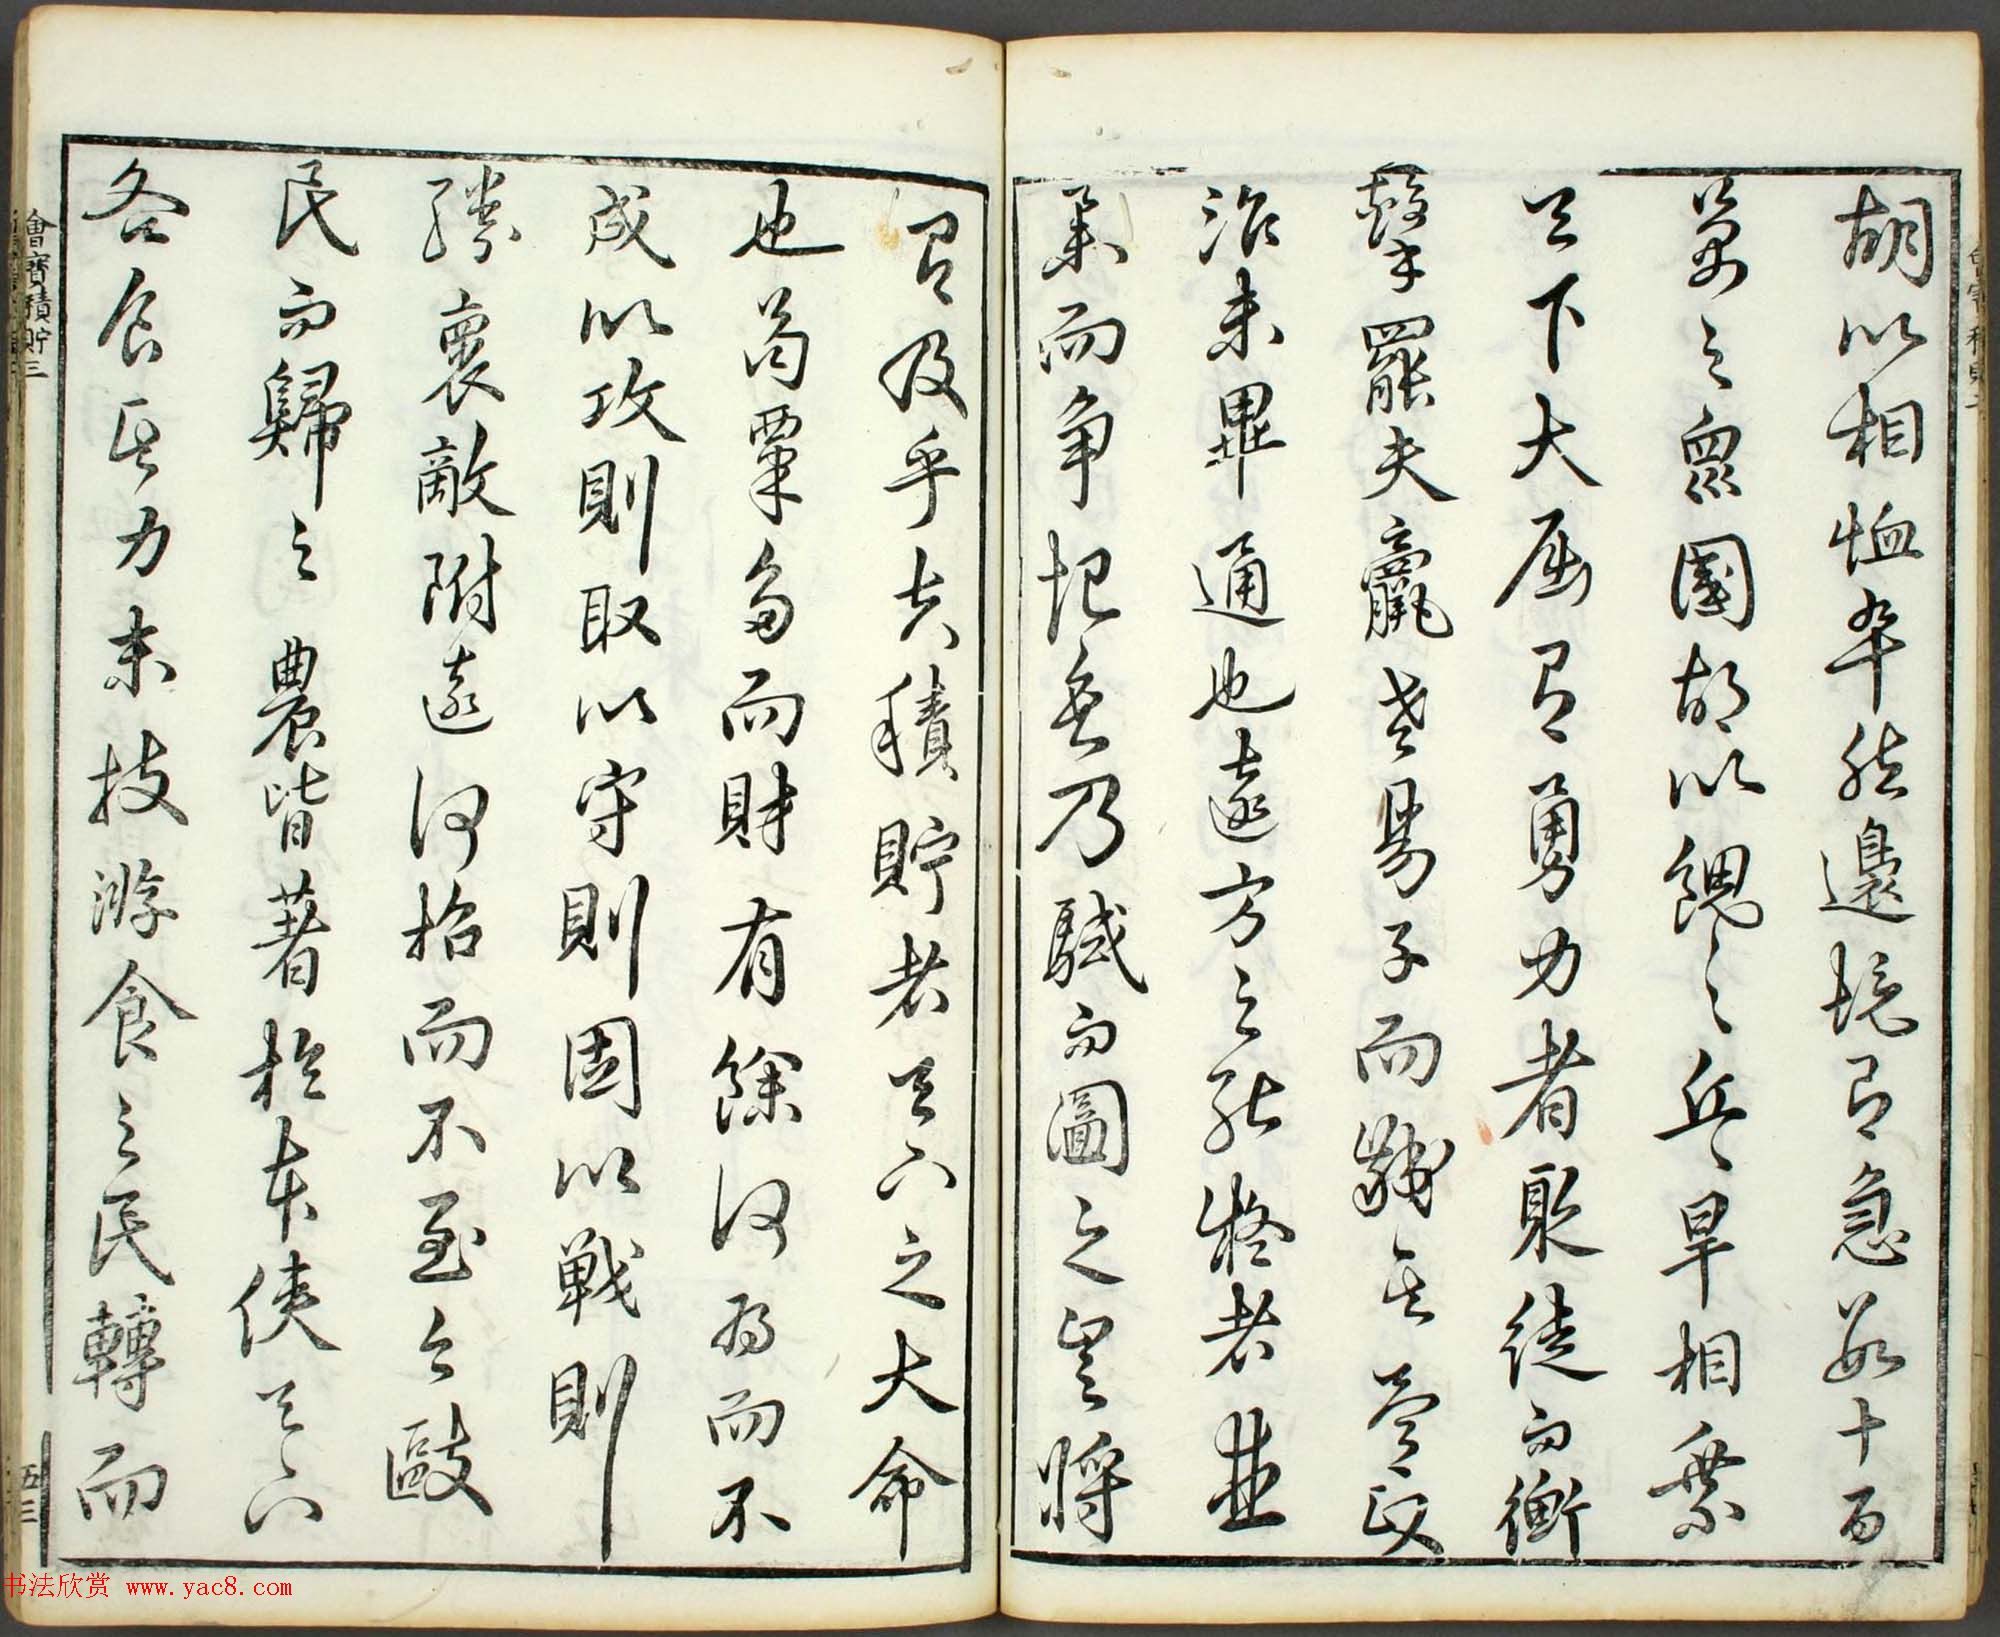 胡以相恤卒然邊境有急數十百
萬之眾國胡以餽之兵旱相乘
天下大屈有勇力者聚徒而衡
擊罷夫羸老易子而齩其骨政
治未畢通也遠方之能擬者並
舉而爭起矣乃駭而圖之豈將
有及乎夫積貯者天下之大命
也苟粟多而財有餘何為而不
成以攻則取以守則固以戰則
勝懷敵附遠何招而不至今毆
民而歸之農皆著於本使天下
各食其力末技游食之民轉而
會寶積貯三
五三
书法欣赏 www.yac8.com